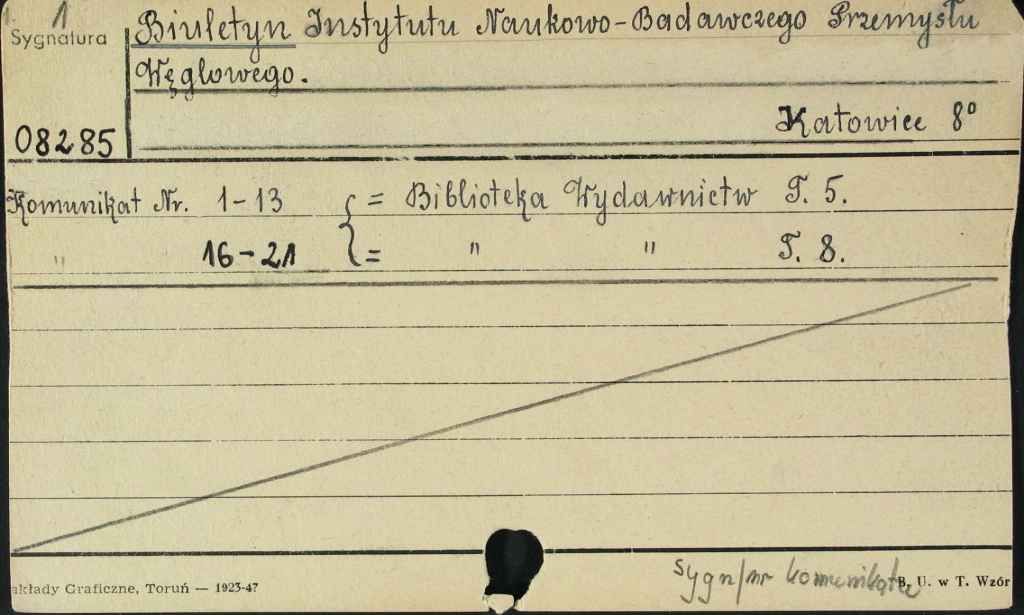 1. 1
Sygnatura
Biuletyn Instytutu Naukowo-Badawczego Przemysłu
Węglowego.
08285
Katowice 8°
Komunikat Nr. 1-13 { = Biblioteka Wydawnictw T. 5.
" 16-21 = " " T. 8.
sygn/nr komunikatu
akłady Graficzne, Toruń — 1923-47
B. U. w T. Wzór